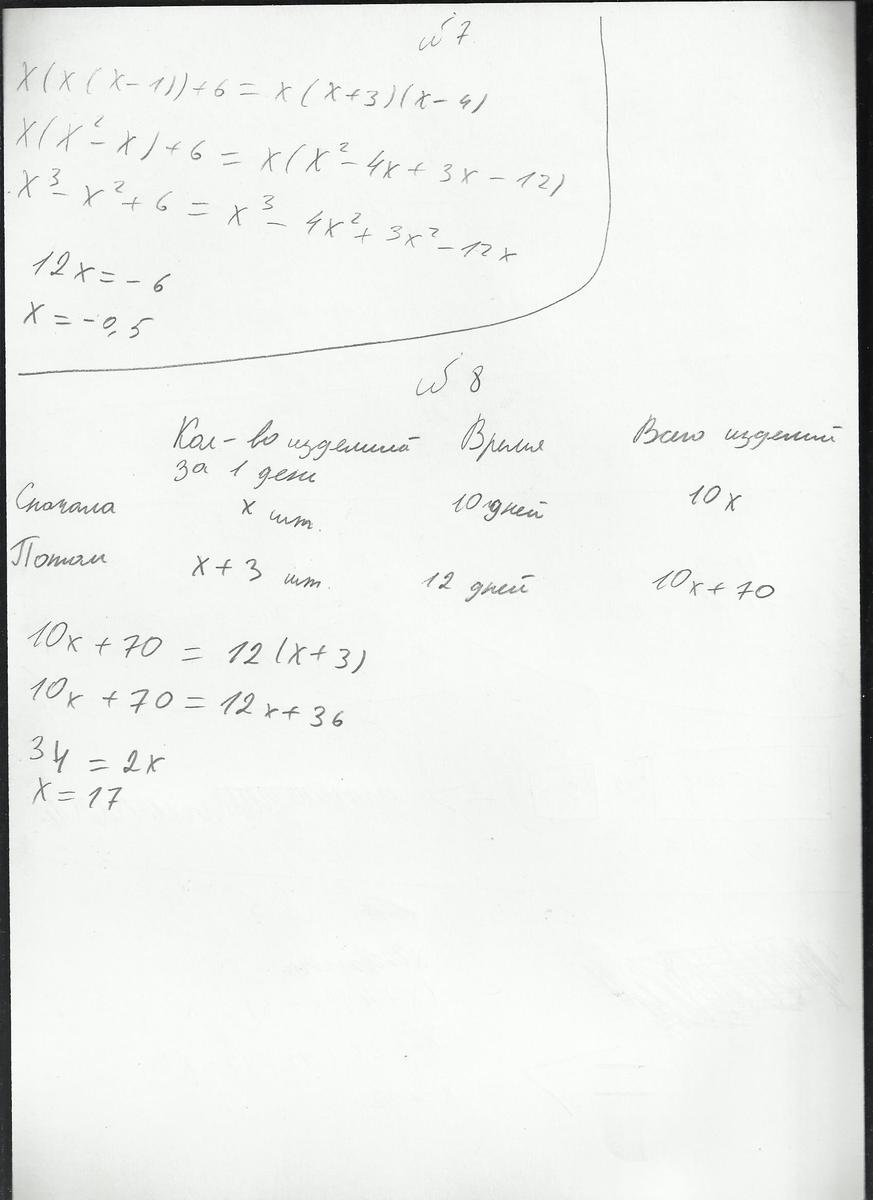 № 7
x(x(x-1))+6 = x(x+3)(x-4)
x(x²-x)+6 = x(x²-4x+3x-12)
x³-x²+6 = x³-4x²+3x²-12x
12x=-6
x=-0,5
№ 8
Кол-во изделий за 1 день Время Всего изделий
Сначала x шт. 10 дней 10x
Потом x+3 шт. 12 дней 10x+70
10x+70 = 12(x+3)
10x+70=12x+36
34=2x
x=17